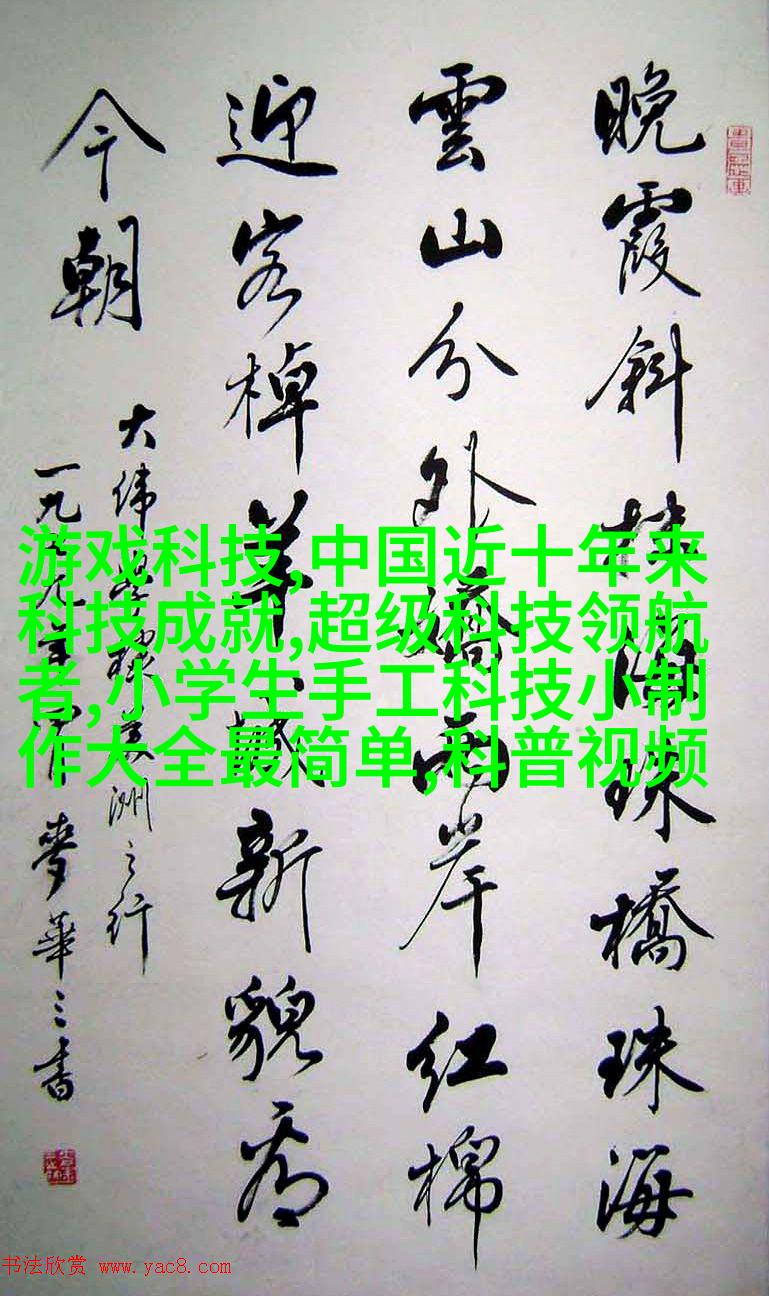 晚霞斜挂海珠橋珠海
雲山分外嬌兩岸红棉
迎客棹羊城新貌看
今朝
大偉學棣美洲之行
一九年麥華三書
游戏科技,中国近十年来
科技成就,超级科技领航
者,小学生手工科技小制
作大全最简单,科普视频
书法欣赏 www.yac8.com